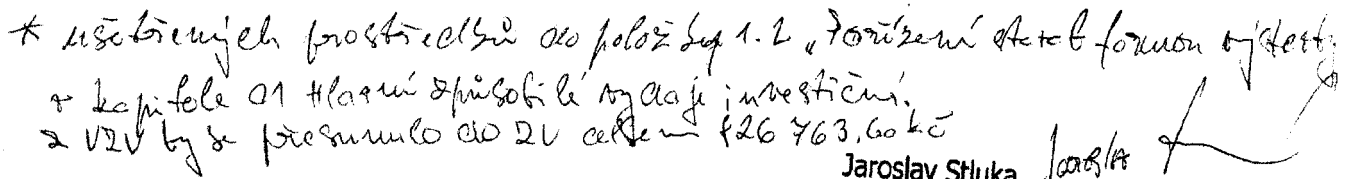 * ušetřených prostředků do položky 1.2 „Pořízení staveb formou výstavby
v kapitole 01 Hlavní způsobilé výdaje investiční.
z VZV by se přesunulo do ZV celkem 826 763,60 kč
Jaroslav Stluka